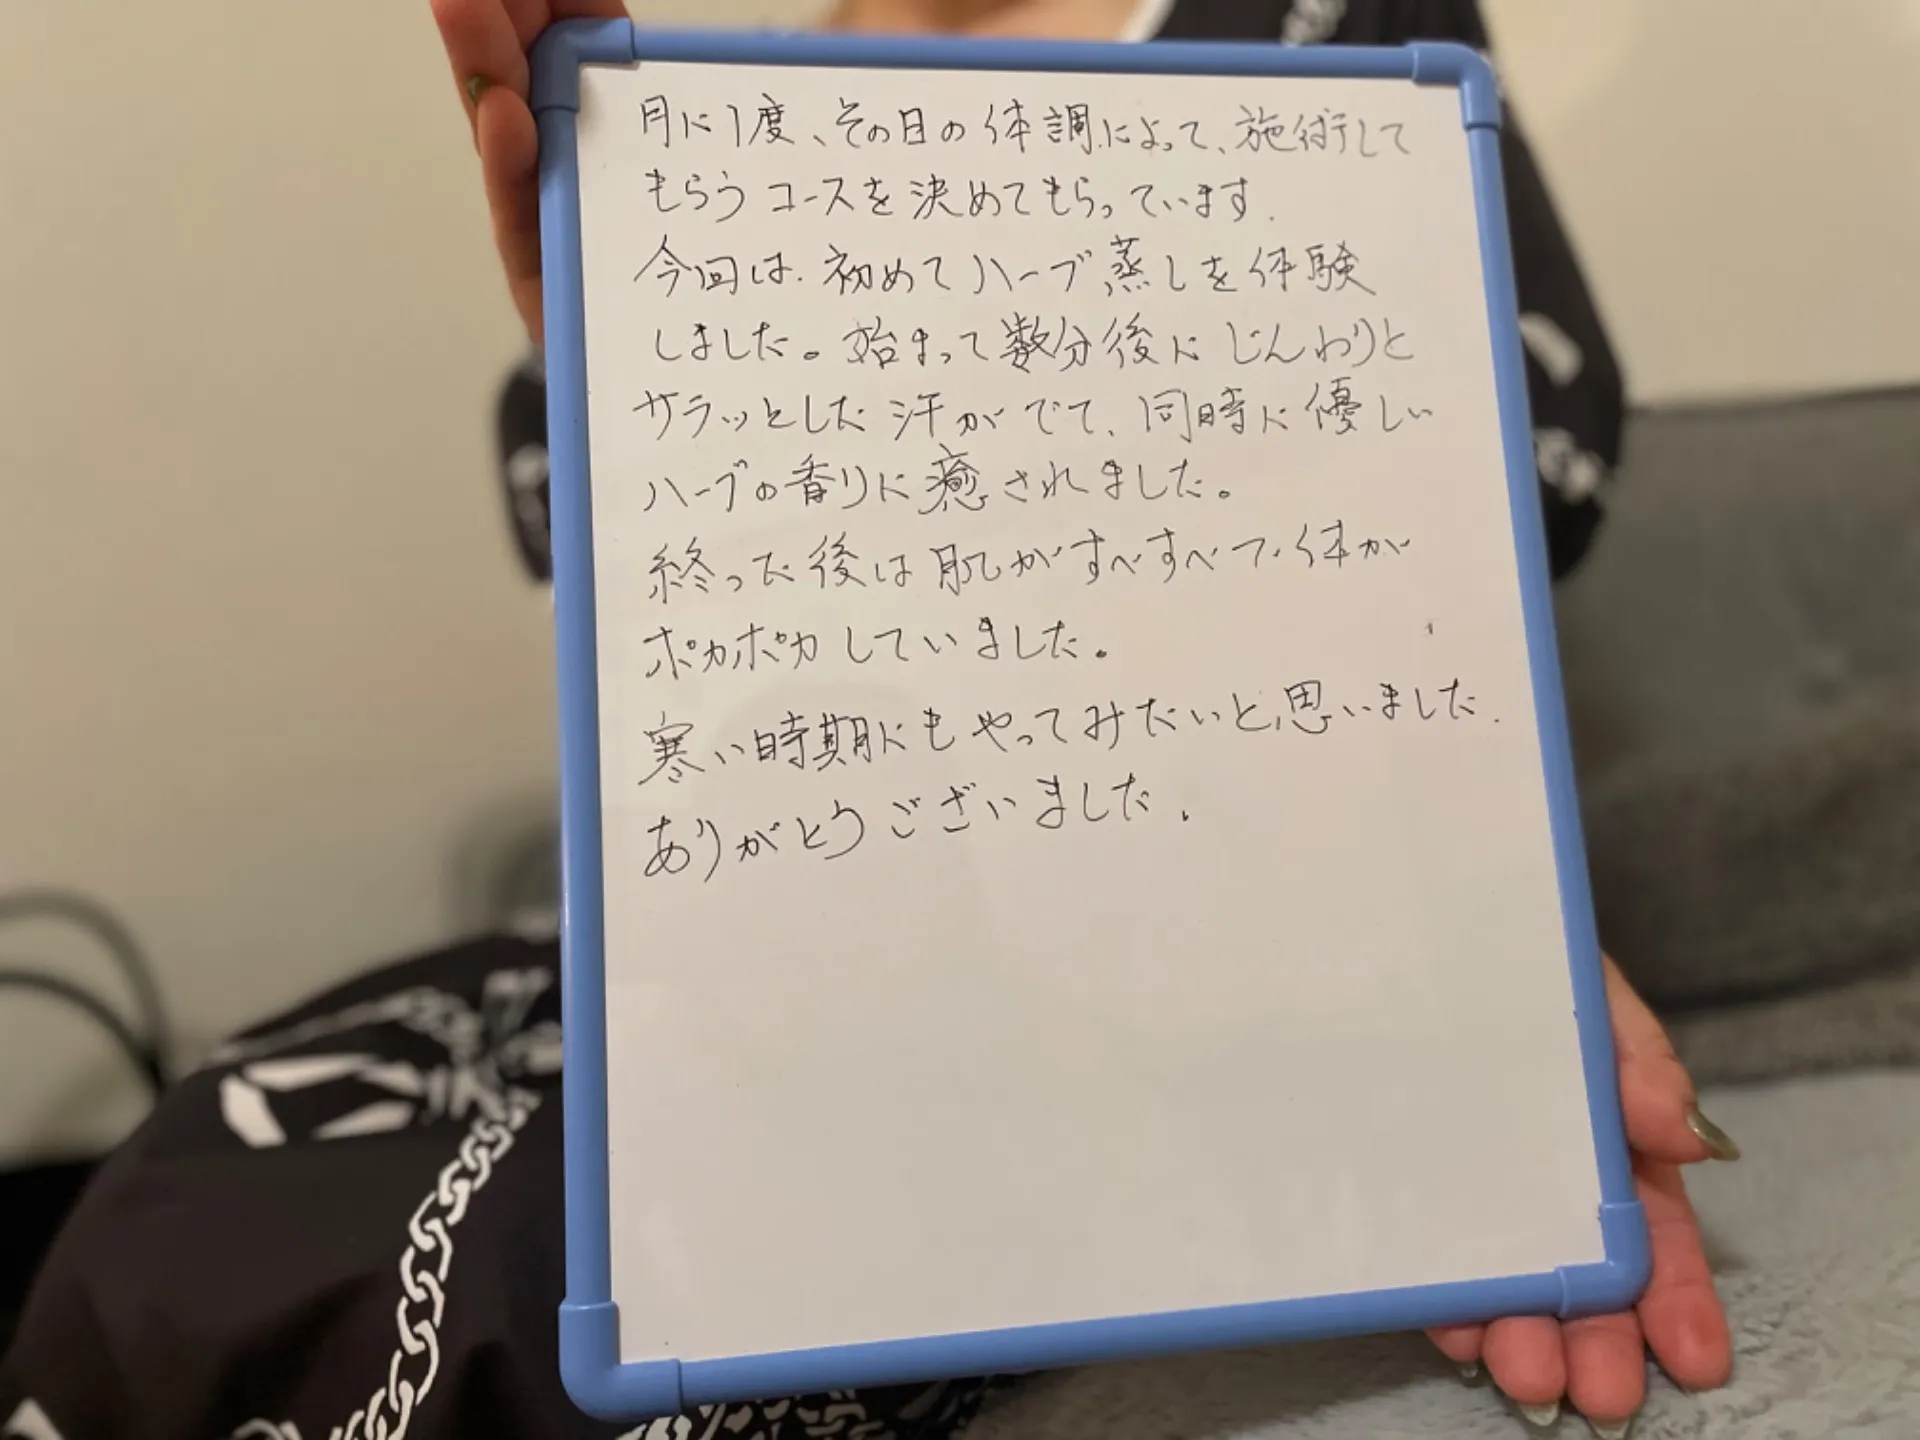 月に1度、その日の体調によって、施術して
もらうコースを決めてもらっています.
今回は.初めてハーブ蒸しを体験
しました。始まって数分後にじんわりと
サラッとした汗がでて、同時に優しい
ハーブの香りに癒されました。
終った後は肌がすべすべで体が
ポカポカしていました。
寒い時期にもやってみたいと思いました.
ありがとうございました.